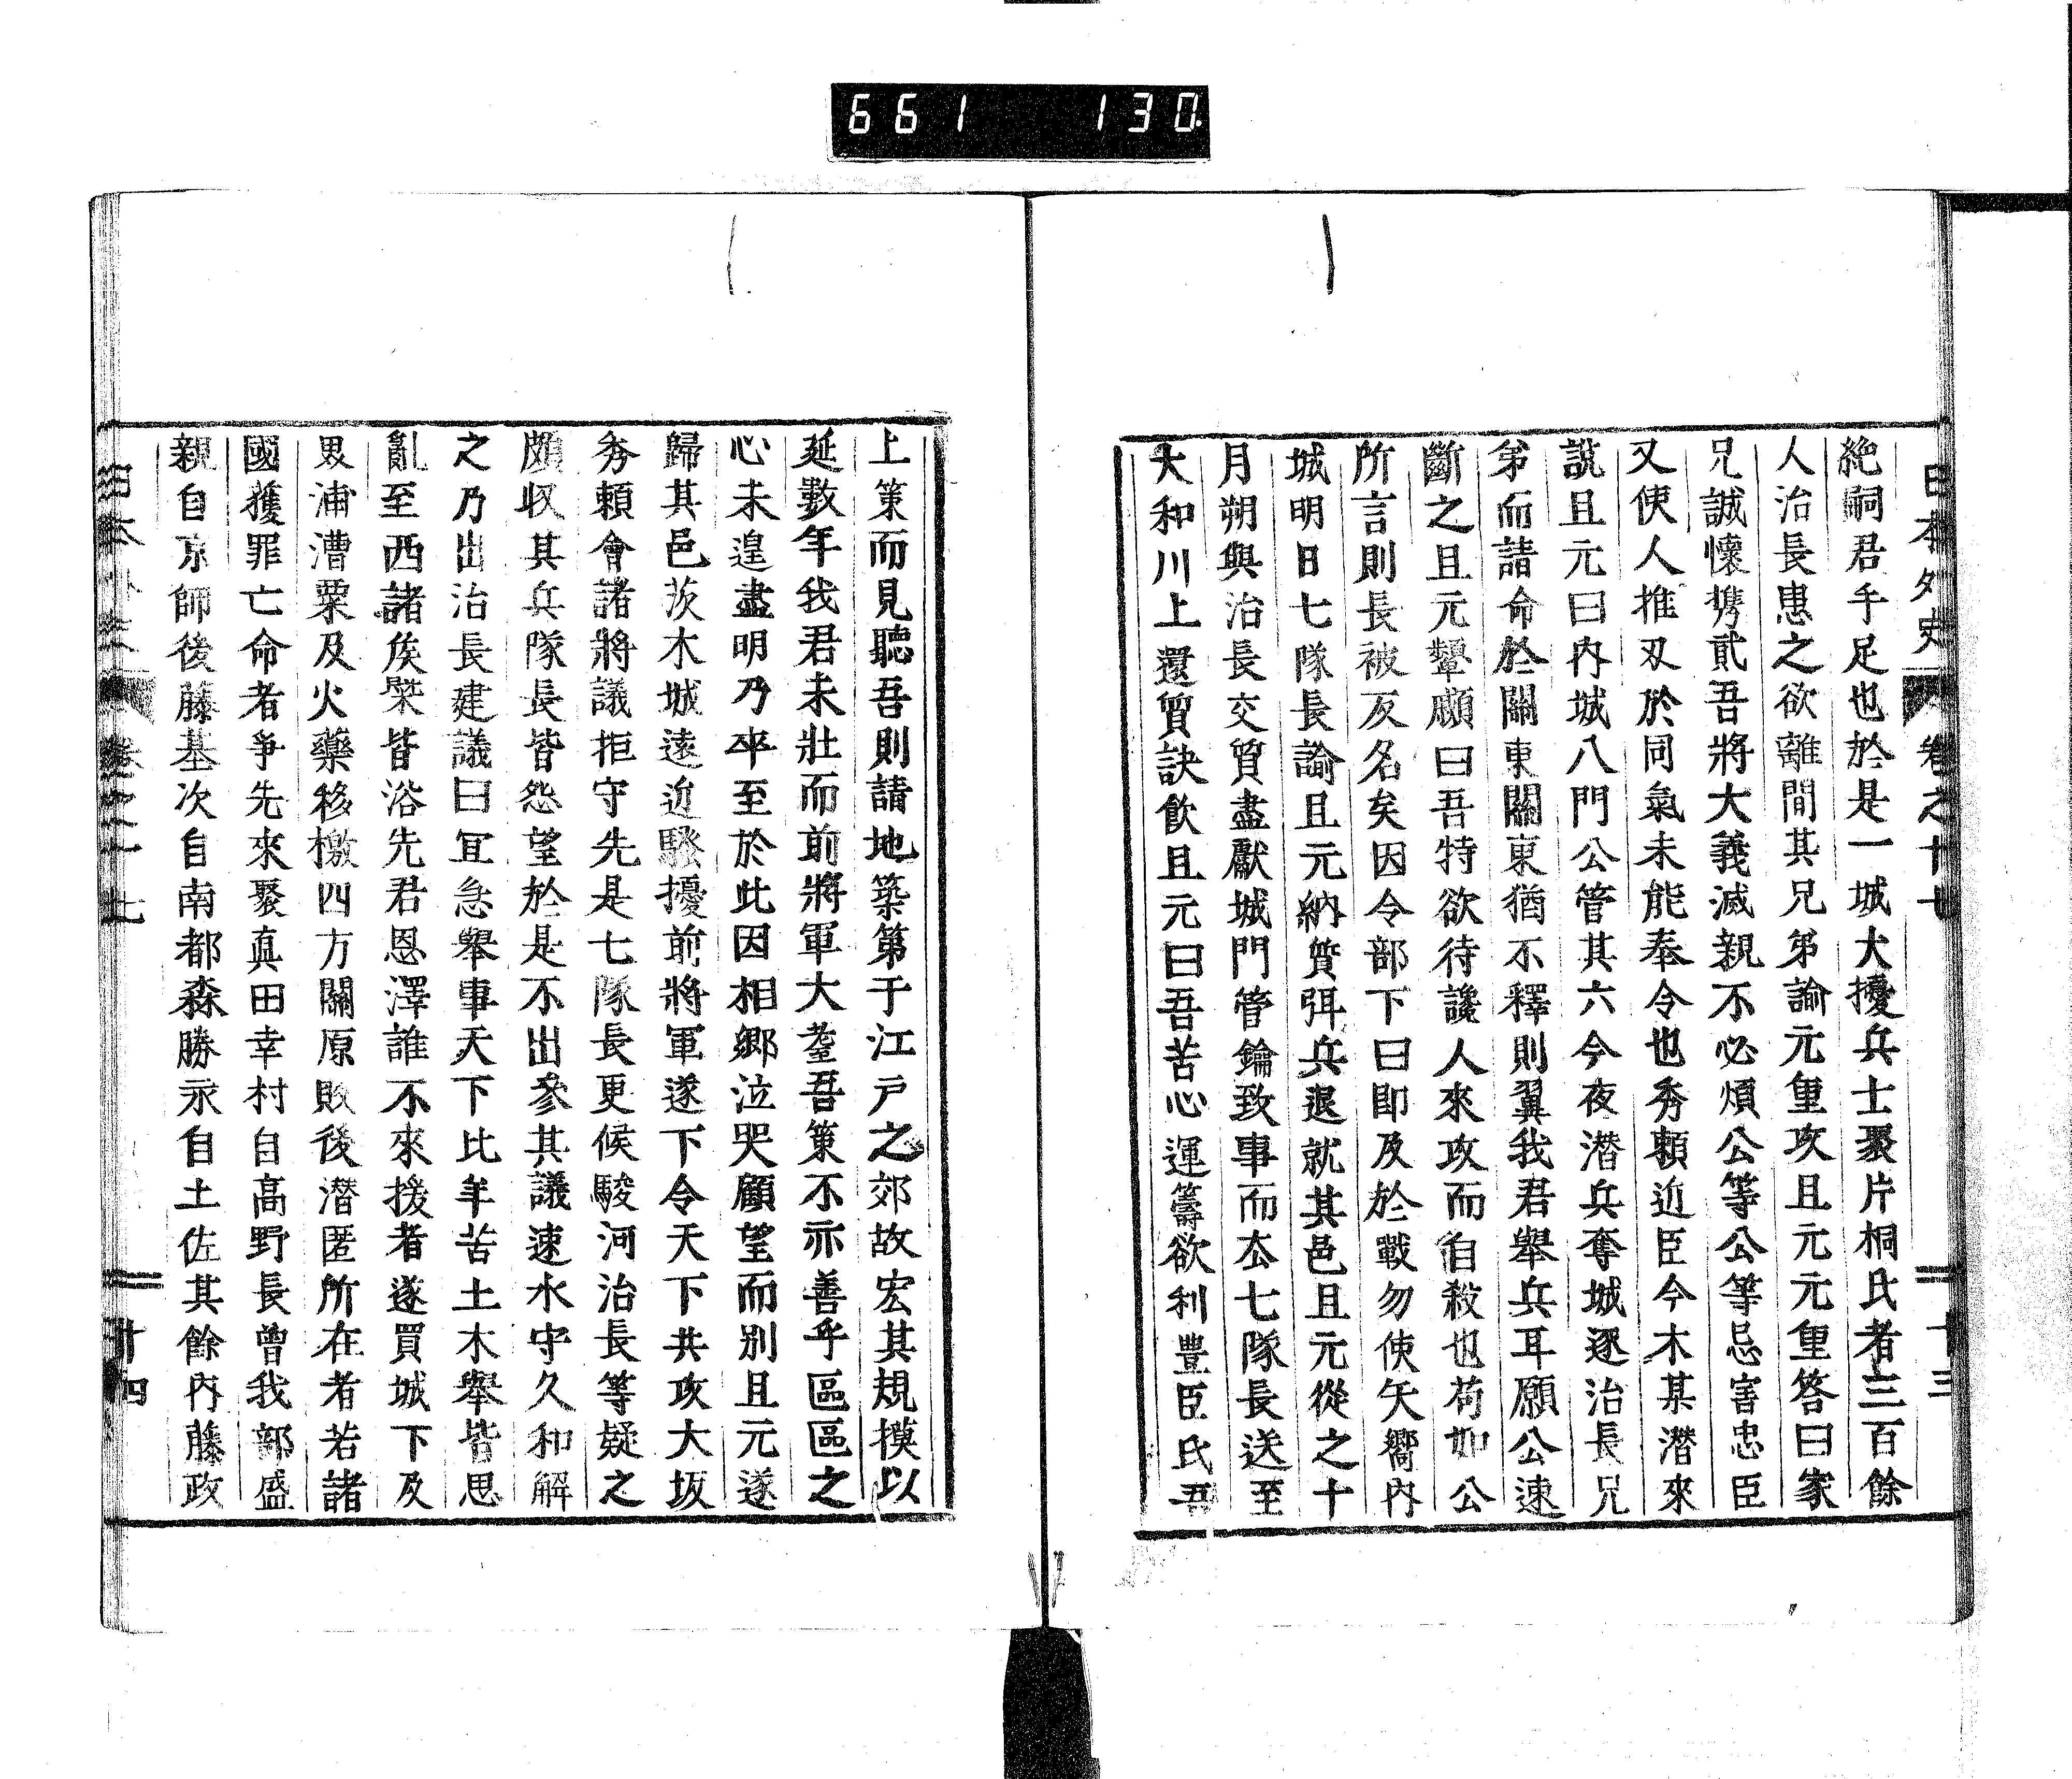 661 130
日本外史 卷之十七 十三
絶嗣君手足也於是一城大擾兵士聚片桐氏者三百餘
人治長患之欲離間其兄弟諭元重攻且元元重答曰家
兄誠懷攜貳吾將大義滅親不必煩公等公等忌害忠臣
又使人推刃於同氣未能奉令也秀頼近臣今木某潛來
説且元曰内城八門公管其六今夜潛兵奪城逐治長兄
弟而請命於關東關東猶不釋則翼我君舉兵耳願公速
斷之且元顰顣曰吾特欲待讒人來攻而自殺也苟如公
所言則長被反名矣因令部下曰即及於戰勿使矢嚮内
城明日七隊長諭且元納質弭兵退就其邑且元從之十
月朔與治長交質盡獻城門管鑰致事而去七隊長送至
大和川上還質訣飲且元曰吾苦心運籌欲利豊臣氏吾
上策而見聽吾則請地築第于江戸之郊故宏其規摸以
延數年我君未壯而前將軍大耋吾策不亦善乎區區之
心未遑盡明乃卒至於此因相鄉泣哭顧望而別且元遂
歸其邑茨木城遠近騷擾前將軍遂下令天下共攻大坂
秀頼會諸將議拒守先是七隊長更候駿河治長等疑之
頗収其兵隊長皆怨望於是不出參其議速水守久和解
之乃出治長建議曰宜急舉事天下比年苦土木舉皆思
亂至西諸矦槩皆浴先君恩澤誰不來援者遂買城下及
界浦漕粟及火藥移檄四方關原敗後潛匿所在者若諸
國獲罪亡命者爭先來聚眞田幸村自高野長曾我部盛
親自京師後藤基次自南都森勝永自土佐其餘内藤政
日本外史 卷之十七 十四